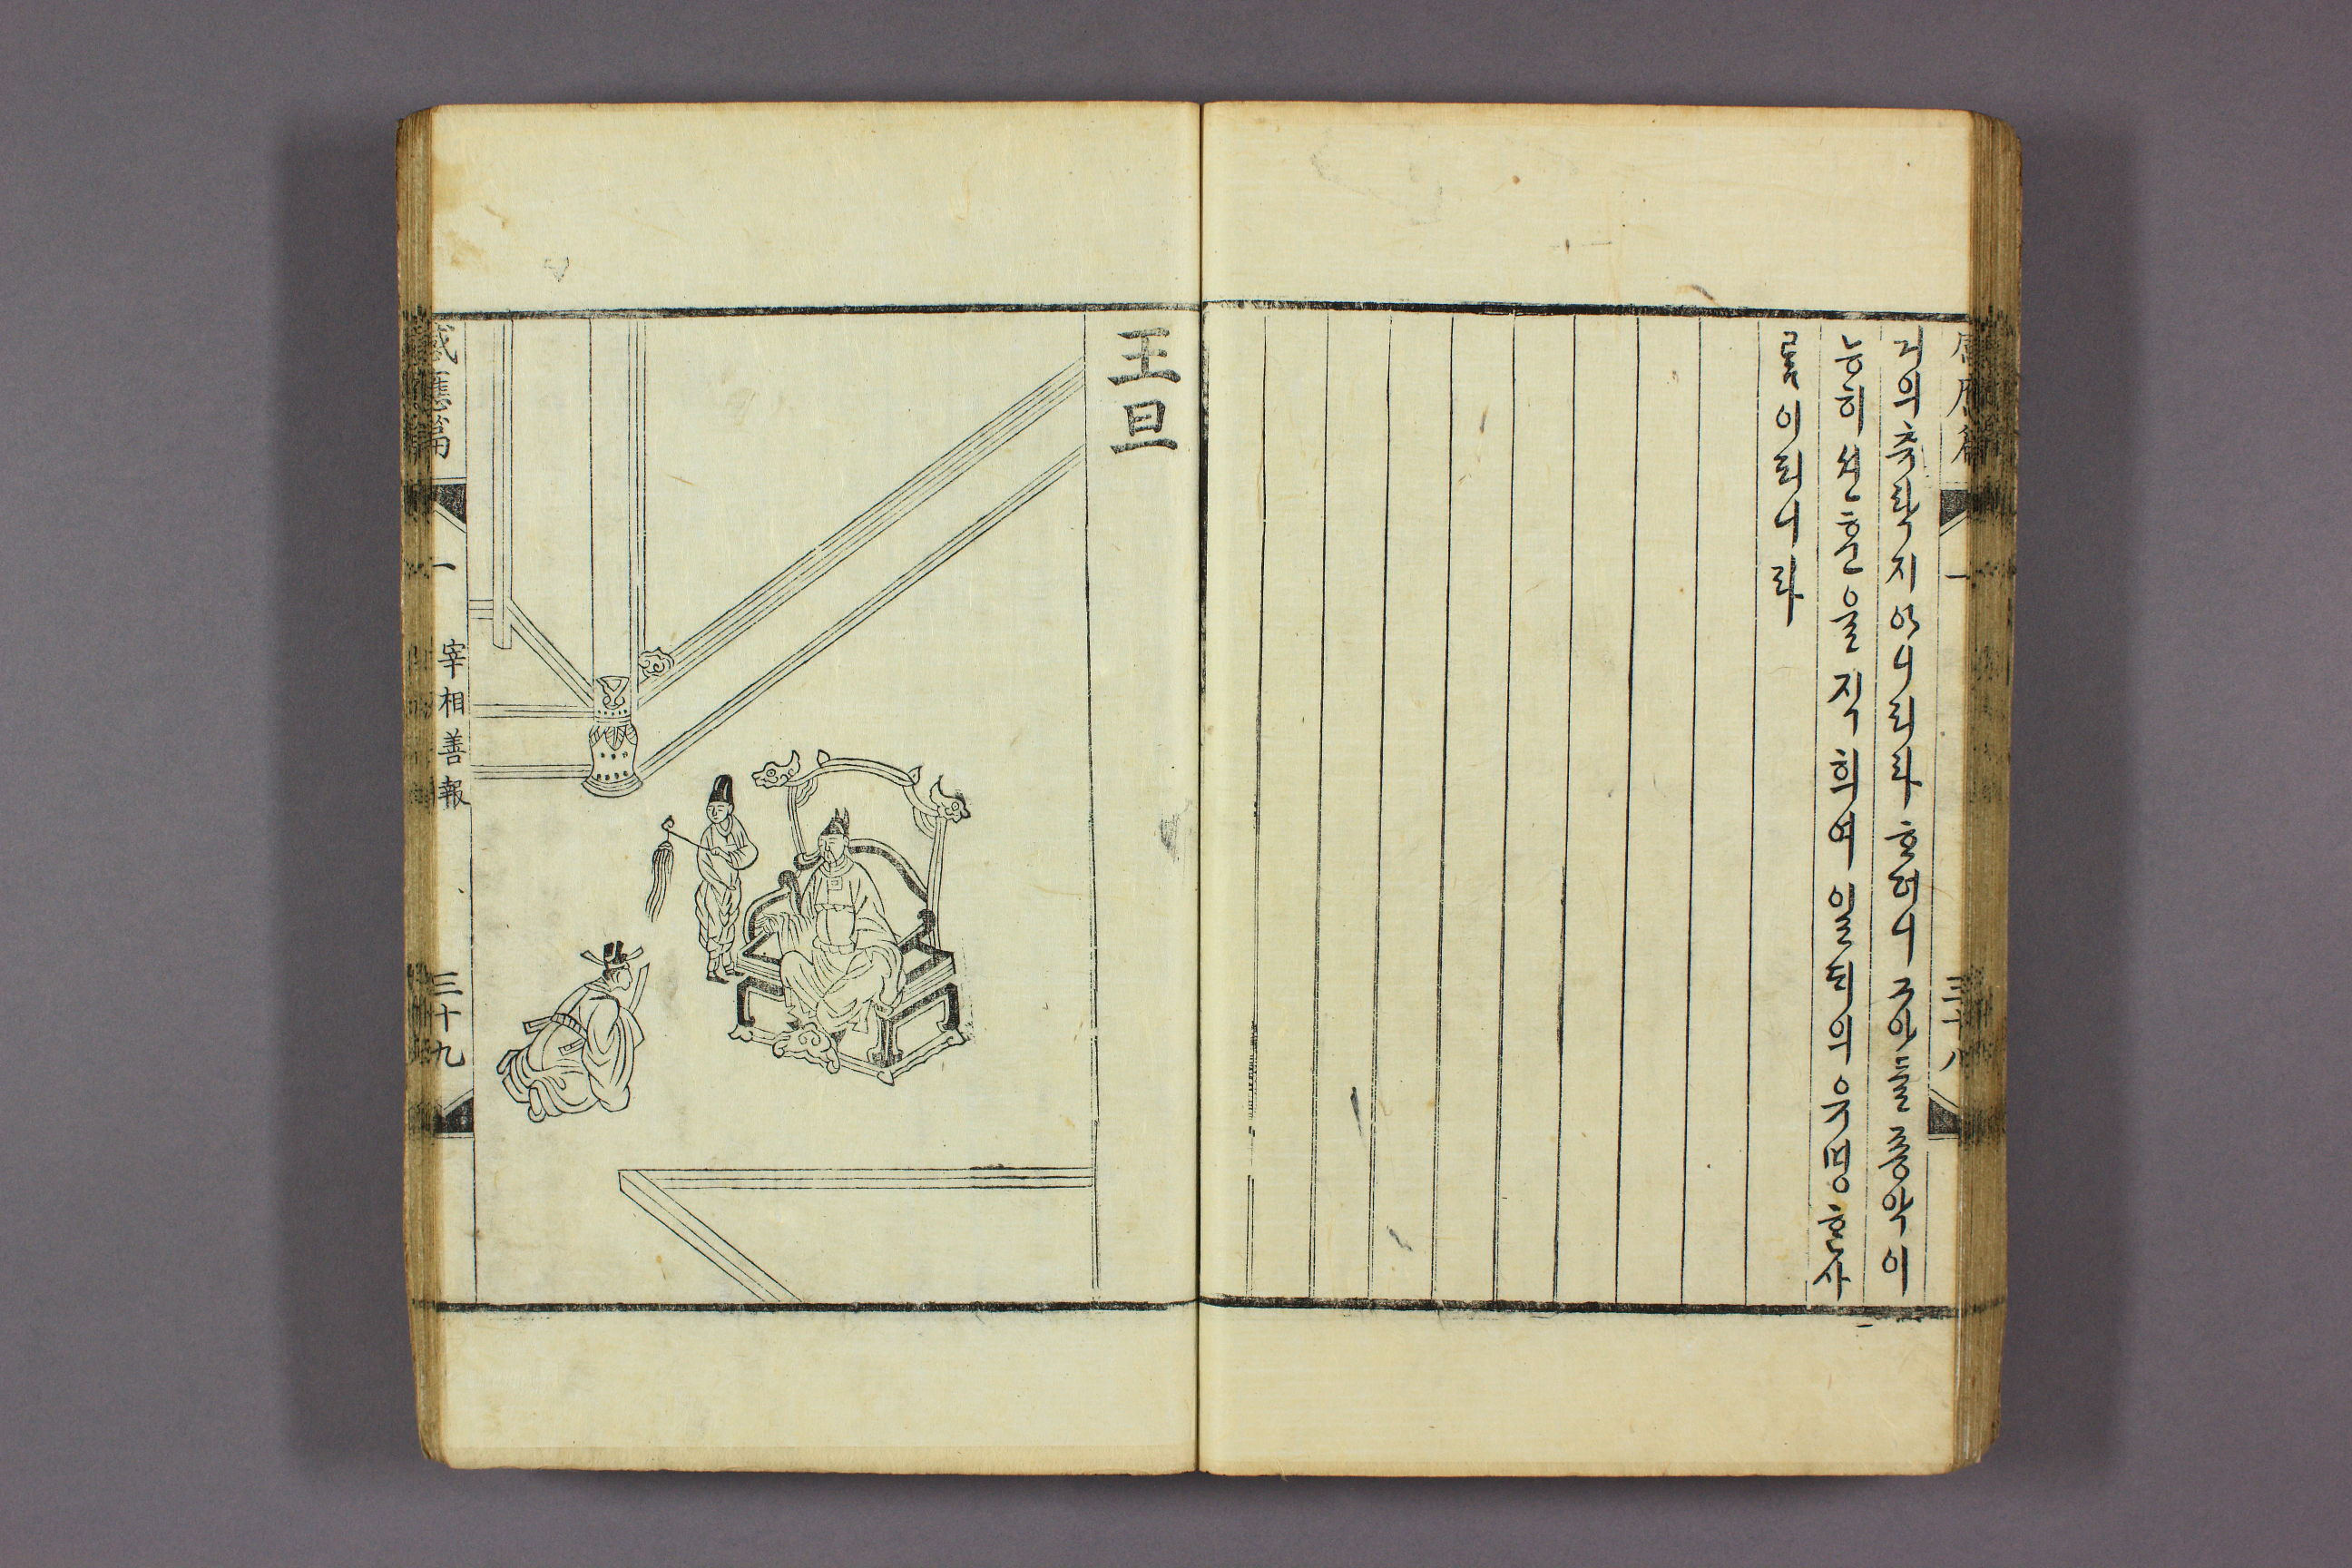 感應篇 一 三十八
거의츄락지아니리라ᄒᆞ더니그아ᄃᆞᆯ즁악이
능히션훈을직희여일ᄃᆡ의유명ᄒᆞᆫ사
ᄅᆞᆷ이되니라
王旦
感應篇 一 宰相善報 三十九